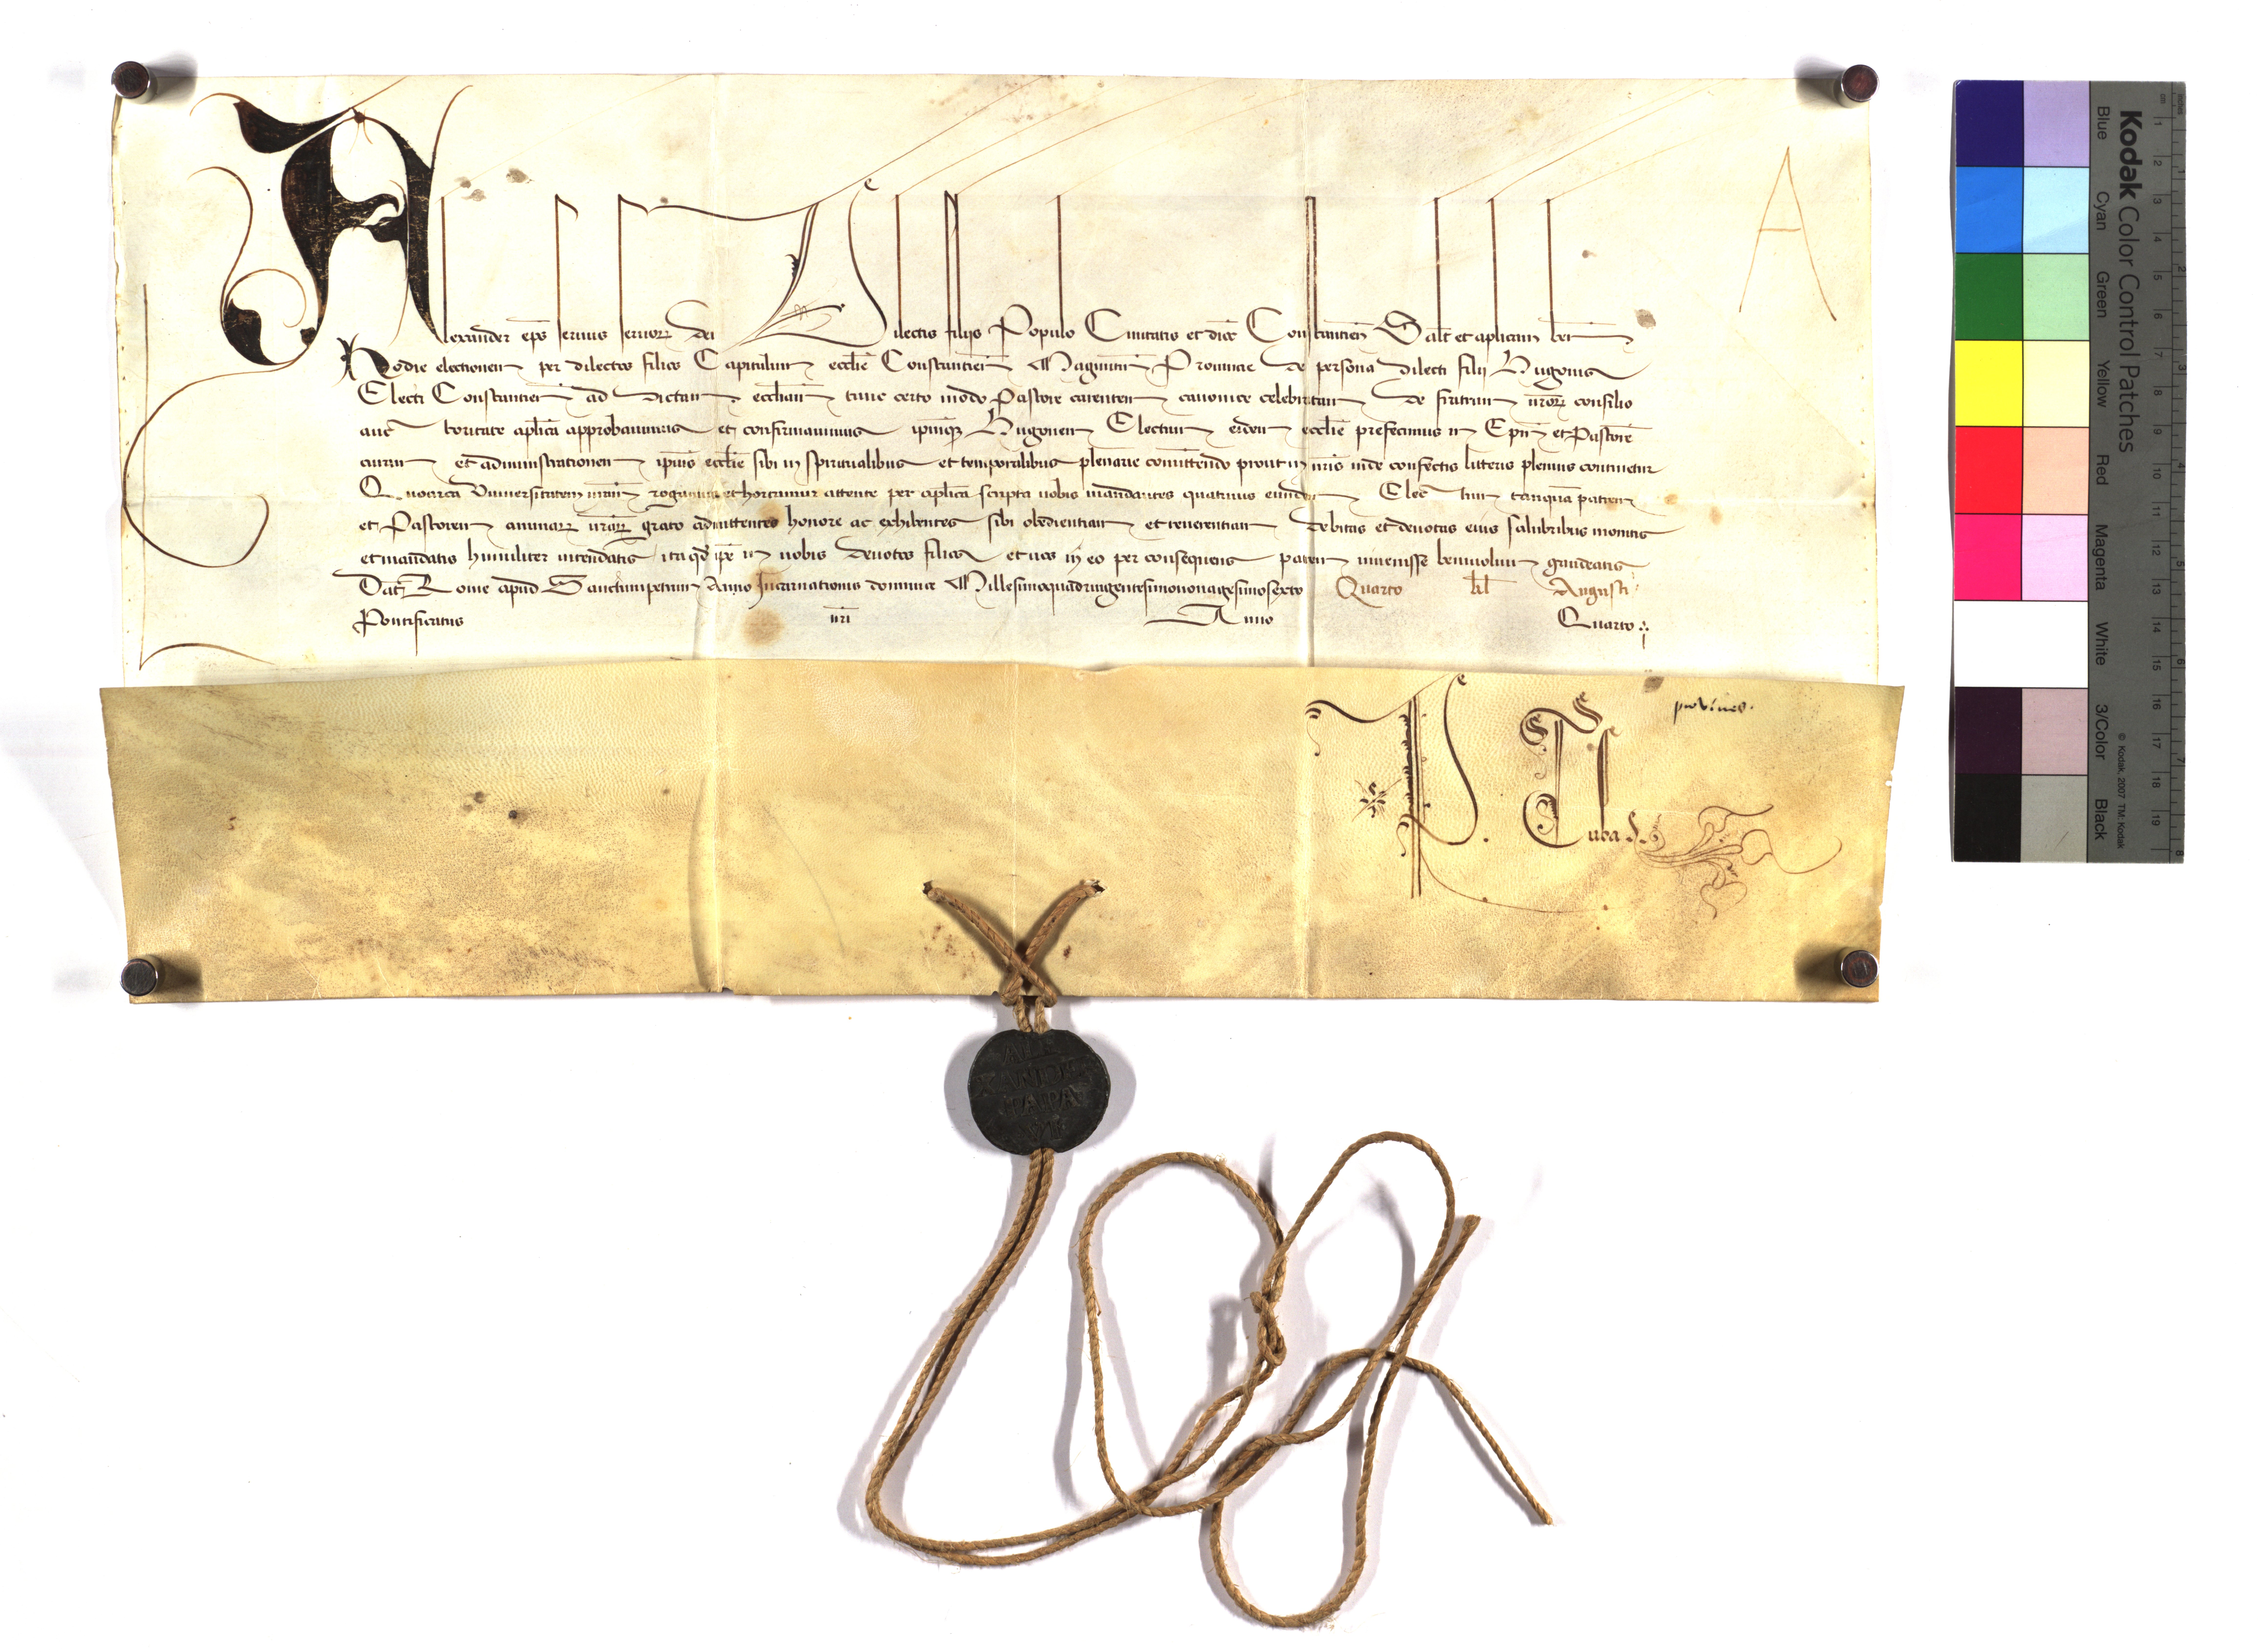 Alexander ep̄s servus servorꝝ dei Dilectis filijs Populo Civitatis et dioc̄ Constantien̄ Salt̄ et aplicam ben̄
Hodie electionem per dilectos filios Capitulum eccl̄ie Constantien̄ Maguntin̄ Provincie de persona dilecti filij Hugonis
Electi Constantien̄ ad dictam eccl̄iam tunc certo modo Pastore carentem canonice celebratam de fratrum nr̄orꝝ consilio
auc toritate apl̄ica approbavimus et confirmavimus ipm̄qꝫ Hugonem Electum eidem eccl̄ie prefecimus in Ep̄m et Pastorē
curam et administrationem ip̄ius eccl̄ie sibi in spiritualibus et temporalibus plenarie comittendo prout in nr̄is inde confectis litteris plenius continetur
Quocirca Universitatem vr̄am rogamus et hortamur attente per apl̄ica scripta vobis mandantes quatinus eundem Elec tum tanquā patrem
et Pastorem animarꝝ vr̄arꝝ grato admittentes honore ac exhibentes sibi obedientiam et reverentiam debitas et devotas eius salubribus monitis
et mandatis humiliter intendatis ita qd̄ ip̄e in vobis devotos filios et vos in eo per consequens patrem invenisse benivolum gaudeatis
Dat̄ Rome apud Sanctumpetrum Anno Incarnationis dominice Millesimoquadringentesimononagesimosexto Quarto kl̄ Augusti
Pontificatus nr̄i Anno Quarto
A
P. Tuba
ALE
XANDER
PAPA
VI
Kodak Color Control Patches
© Kodak, 2007 TM: Kodak
Blue Cyan Green Yellow Red Magenta White 3/Color Black
inches 1 2 3 4 5 6 7 8
cm 1 2 3 4 5 6 7 8 9 10 11 12 13 14 15 16 17 18 19